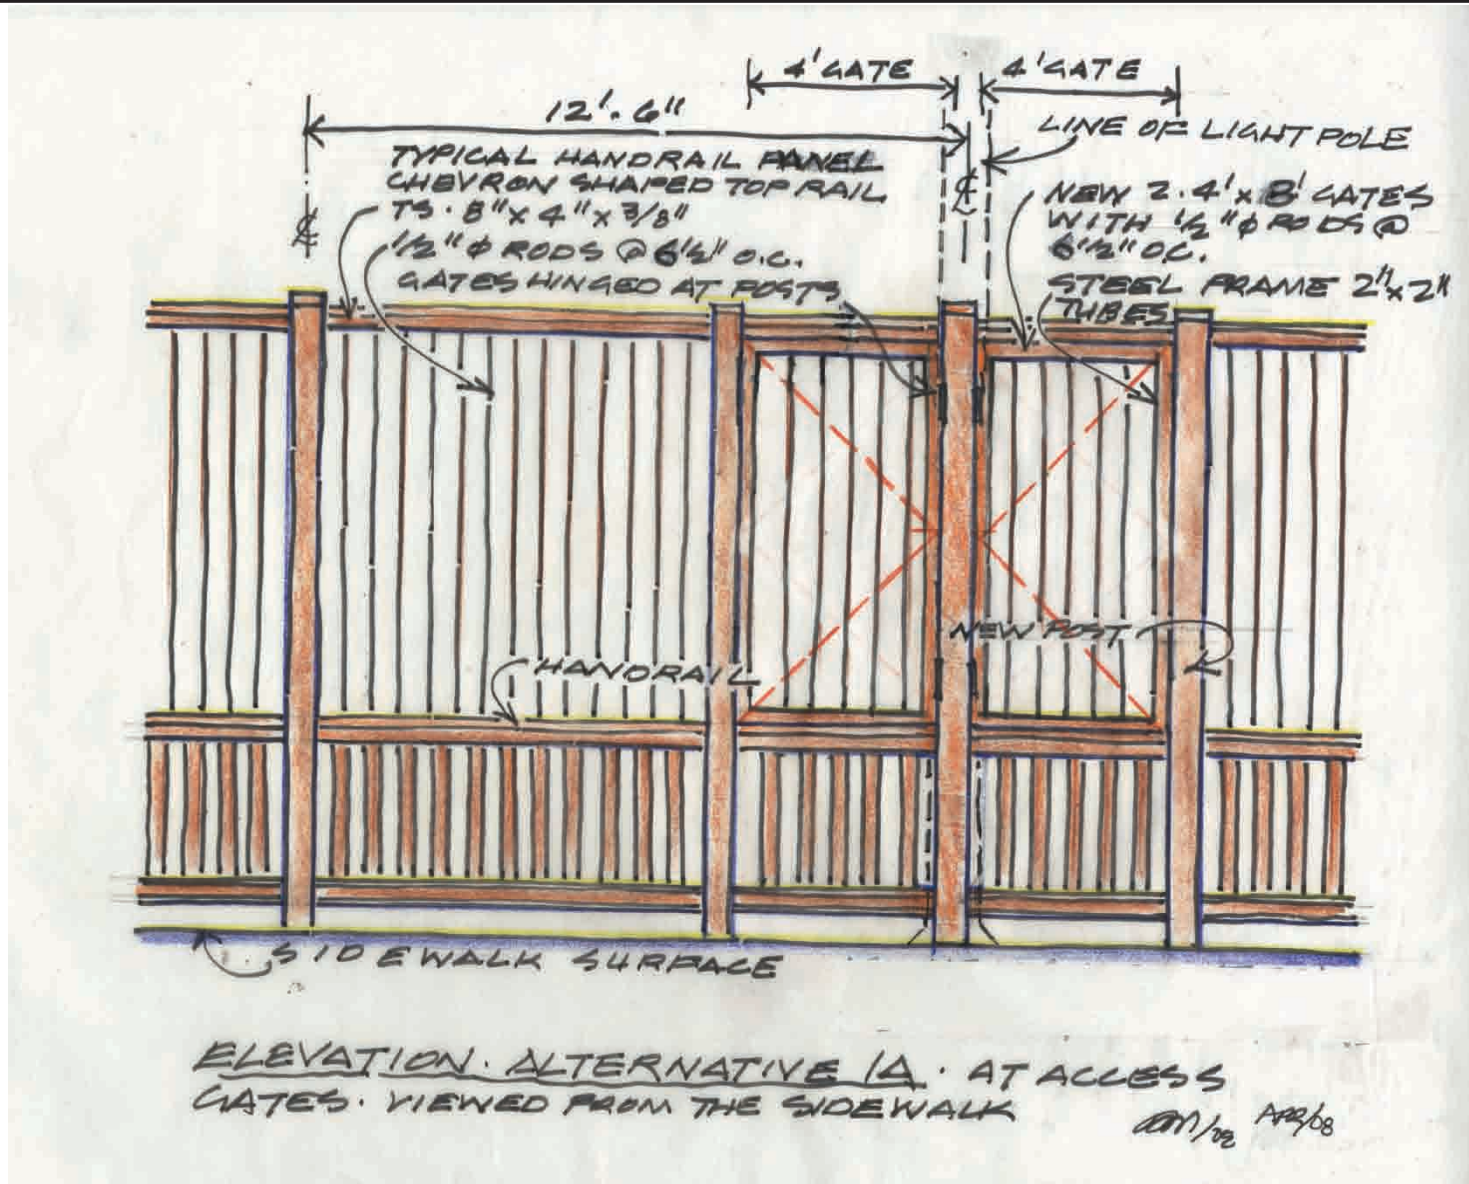 4' GATE
4' GATE
12'·6"
LINE OF LIGHT POLE
TYPICAL HANDRAIL PANEL
CHEVRON SHAPED TOP RAIL
TS·8"x4"x3/8"
1/2"φ RODS @ 6 1/2" O.C.
GATES HINGED AT POSTS
NEW 2·4'x8' GATES
WITH 1/2"φ RODS @
6 1/2" O.C.
STEEL FRAME 2"x2"
TUBES
℄
℄
NEW POST
HANDRAIL
SIDEWALK SURFACE
ELEVATION· ALTERNATIVE 1A· AT ACCESS
GATES· VIEWED FROM THE SIDEWALK
APR/08